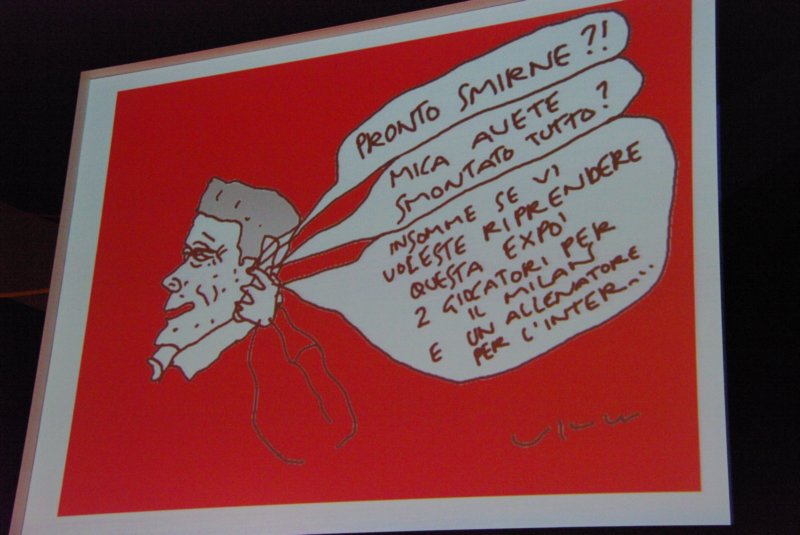 PRONTO SMIRNE?!
MICA AVETE
SMONTATO TUTTO?
INSOMME SE VI
VOLESTE RIPRENDERE
QUESTA EXPO'
2 GIOCATORI PER
IL MILAN
E UN ALLENATORE
PER L'INTER...